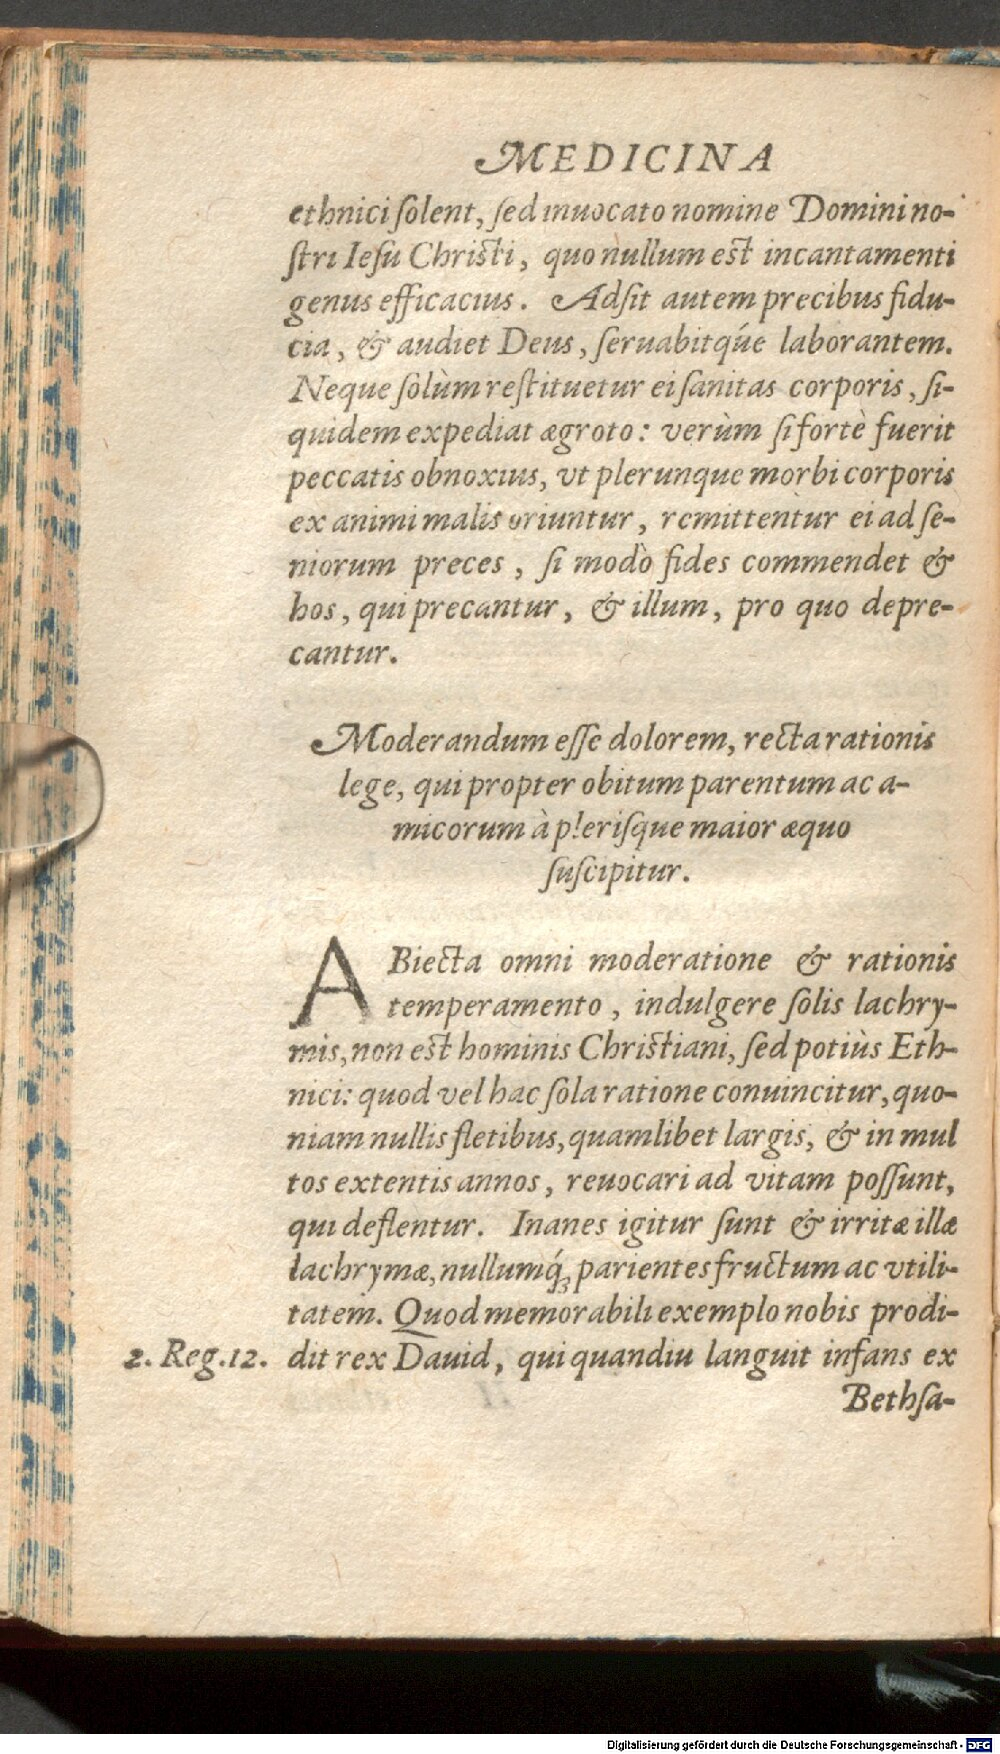 MEDICINA
ethnici ſolent, ſed inuocato nomine Domini no-
ſtri Ieſu Chriſti, quo nullum eſt incantamenti
genus efficacius. Adſit autem precibus fidu-
cia, & audiet Deus, ſeruabitqúe laborantem.
Neque ſolùm reſtituetur ei ſanitas corporis, ſi-
quidem expediat ægroto: verùm ſi fortè fuerit
peccatis obnoxius, vt plerunque morbi corporis
ex animi malis oriuntur, remittentur ei ad ſe-
niorum preces, ſi modò fides commendet &
hos, qui precantur, & illum, pro quo depre-
cantur.
Moderandum eſſe dolorem, recta rationis
lege, qui propter obitum parentum ac a-
micorum à pleriſque maior æquo
ſuſcipitur.
ABiecta omni moderatione & rationis
temperamento, indulgere ſolis lachry-
mis, non eſt hominis Chriſtiani, ſed potiùs Eth-
nici: quod vel hac ſola ratione conuincitur, quo-
niam nullis fletibus, quamlibet largis, & in mul
tos extentis annos, reuocari ad vitam poſſunt,
qui deflentur. Inanes igitur ſunt & irritæ illæ
lachrymæ, nullumq́; parientes fructum ac vtili-
tatem. Quod memorabili exemplo nobis prodi-
2. Reg. 12. dit rex Dauid, qui quandiu languit infans ex
Bethſa-
Digitalisierung gefördert durch die Deutsche Forschungsgemeinschaft - DFG